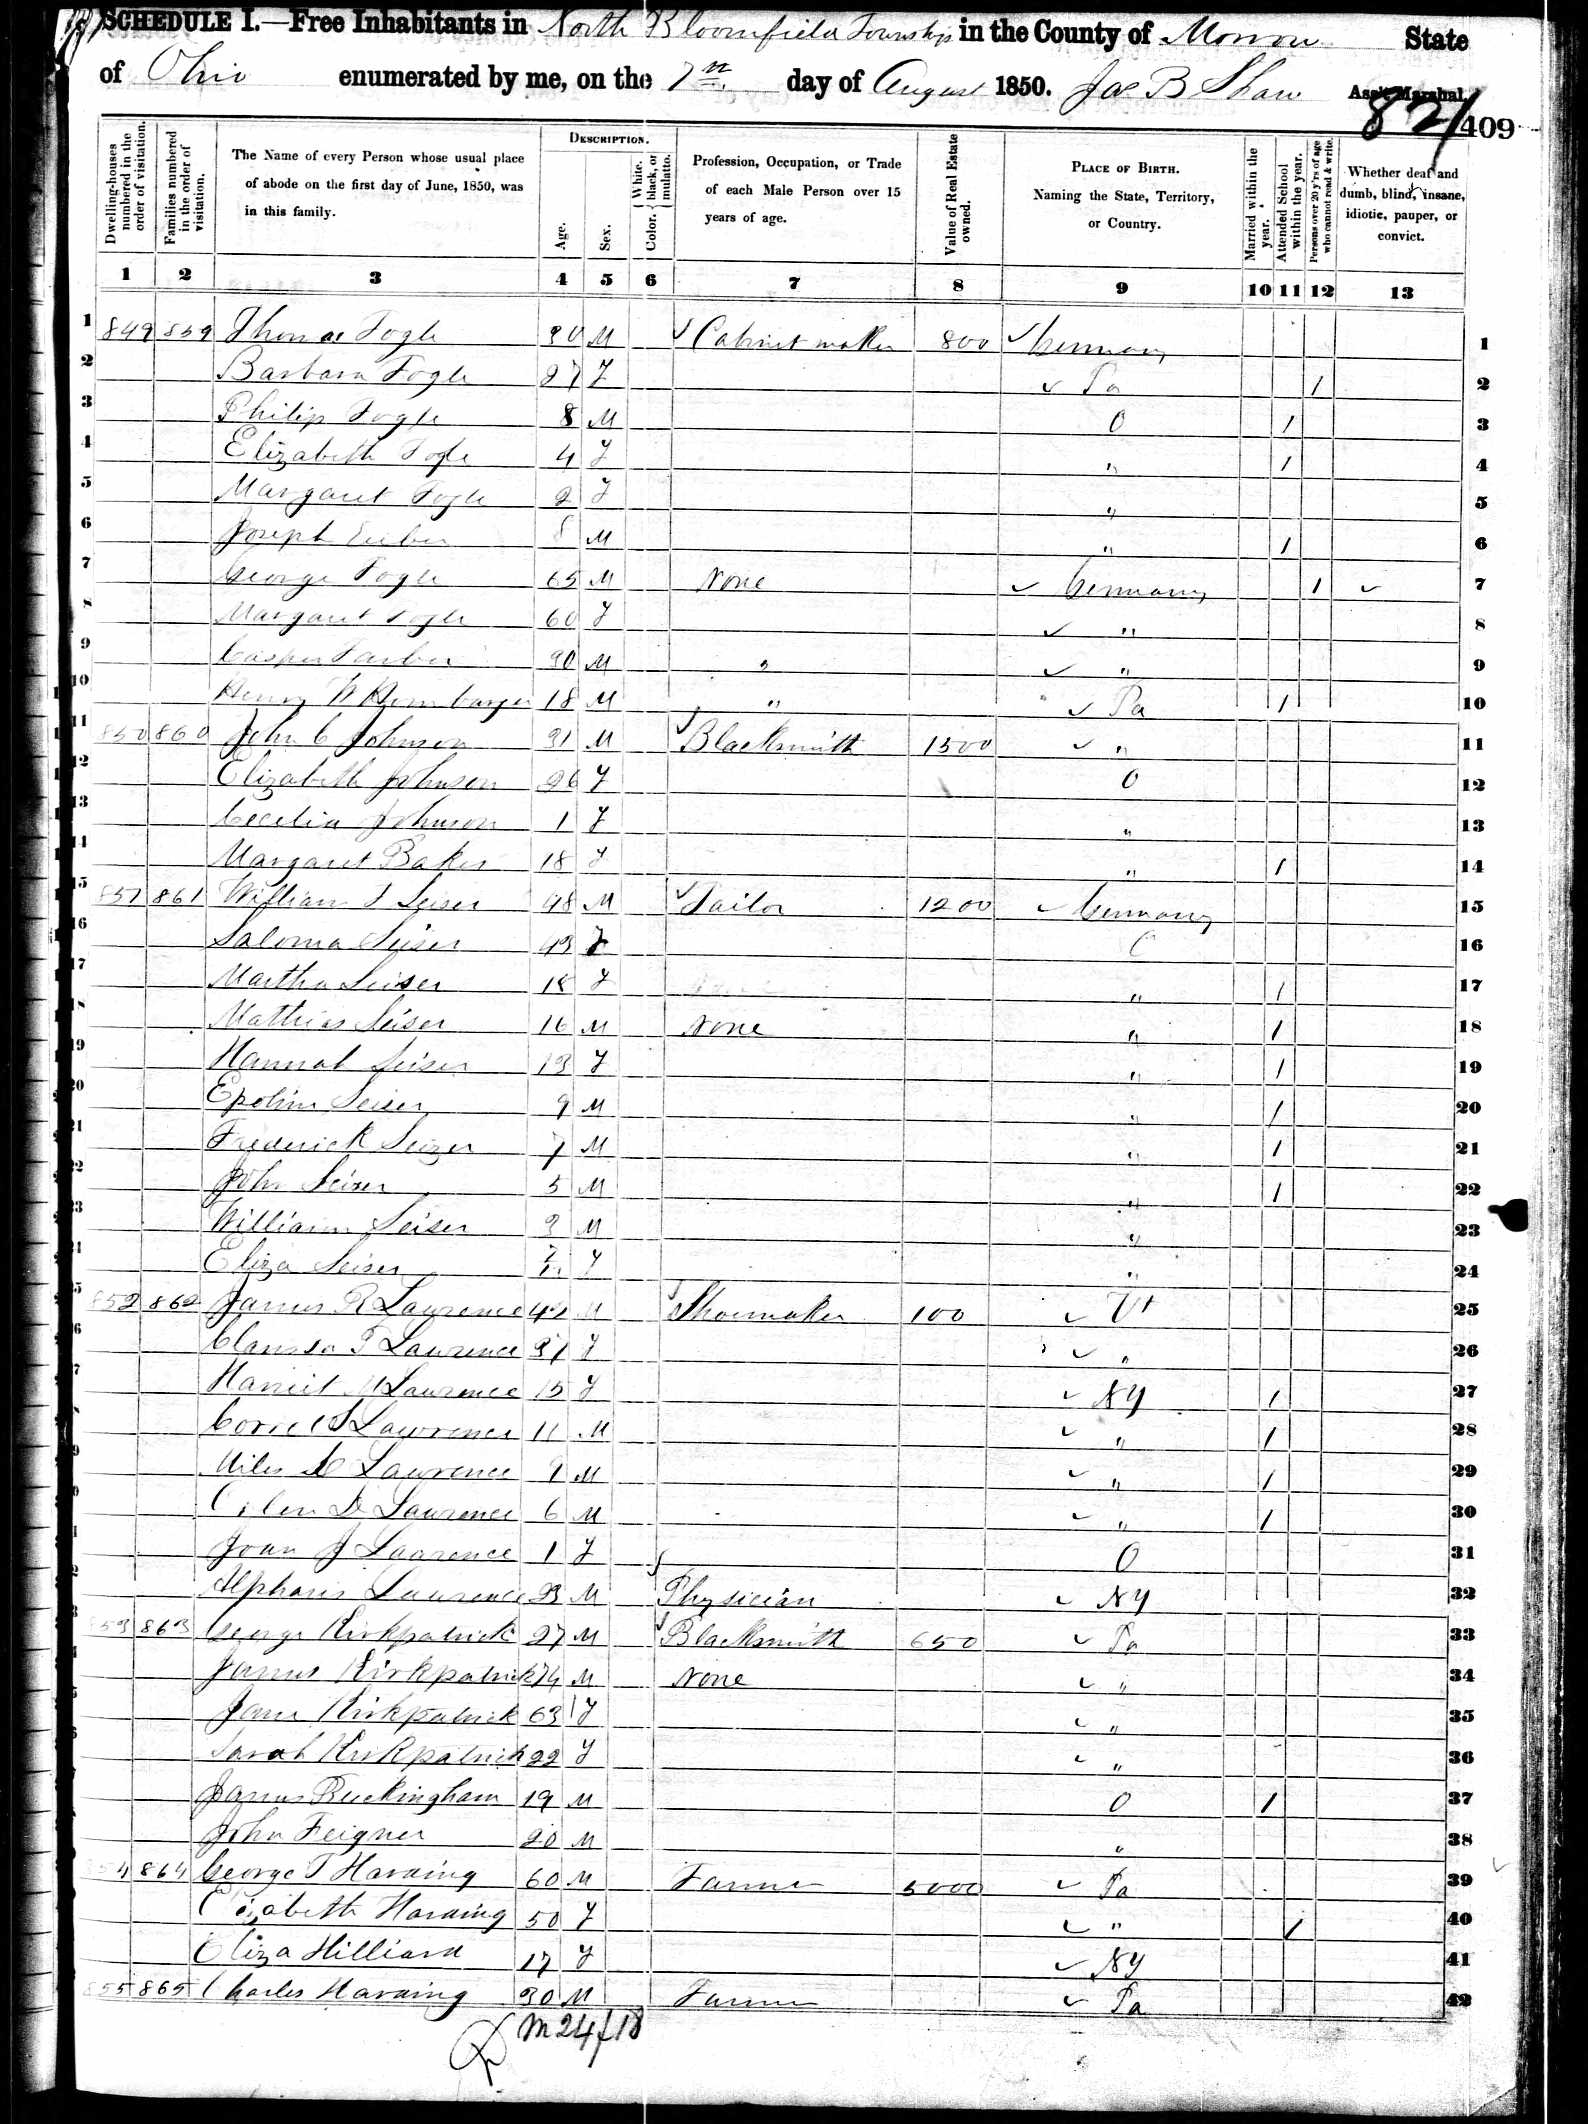 SCHEDULE I.—Free Inhabitants in North Bloomfield Township in the County of Morrow State
of Ohio enumerated by me, on the 7th day of August 1850. Jas B Shaw Ass't Marshal.
821 409
Dwelling-houses numbered in the order of visitation. Families numbered in the order of visitation. The Name of every Person whose usual place of abode on the first day of June, 1850, was in this family. DESCRIPTION. Age. Sex. Color. { White, black, or mulatto. Profession, Occupation, or Trade of each Male Person over 15 years of age. Value of Real Estate owned. PLACE OF BIRTH. Naming the State, Territory, or Country. Married within the year. Attended School within the year. Persons over 20 y'rs of age who cannot read & write. Whether deaf and dumb, blind, insane, idiotic, pauper, or convict.
1 2 3 4 5 6 7 8 9 10 11 12 13
1 849 859 Thomas Fogle 30 M ✓ Cabinet maker 800 ✓ Germany 1
2 Barbara Fogle 27 F ✓ Pa 1 2
3 Philip Fogle 8 M O 1 3
4 Elizabeth Fogle 4 F " 1 4
5 Margaret Fogle 2 F " 5
6 Joseph 8 M " 1 6
7 George Fogle 65 M None ✓ Germany 1 ✓ 7
8 Margaret Fogle 60 F ✓ " 8
9 Casper 30 M " ✓ " 9
10 Henry W 18 M " ✓ Pa 1 10
11 850 860 John C Johnson 31 M ✓ Blacksmith 1500 ✓ " 11
12 Elizabeth Johnson 26 F O 12
13 Cecelia Johnson 1 F " 13
14 Margaret Baker 18 F " 1 14
15 851 861 William Seiser 48 M ✓ Tailor 1200 ✓ Germany 15
16 Saloma Seiser 43 F 16
17 Martha Seiser 18 F " 1 17
18 Mathias Seiser 16 M None " 1 18
19 Hannah Seiser 13 F " 1 19
20 Seiser 9 M " 1 20
21 Frederick Seizer 7 M " 1 21
22 John Seiser 5 M " 1 22
23 William Seiser 3 M " 23
24 Eliza Seiser F " 24
25 852 862 James R Lawrence 42 M ✓ Shoemaker 100 ✓ Vt 25
26 Clarissa Lawrence 37 F ✓ " 26
27 Harriet M Lawrence 15 F ✓ NY 1 27
28 Lawrence 11 M ✓ " 1 28
29 Miles Lawrence 9 M ✓ " 1 29
30 D Lawrence 6 M ✓ " 1 30
31 Joan J Lawrence 1 F O 31
32 Lawrence 23 M Physician ✓ NY 32
33 853 863 George Kirkpatrick 27 M ✓ Blacksmith 650 ✓ Pa 33
34 James Kirkpatrick 74 M None ✓ " 34
35 Jane Kirkpatrick 63 F ✓ " 35
36 Sarah Kirkpatrick 22 F ✓ " 36
37 James Buckingham 19 M O 1 37
38 John Feigner 20 M " 38
39 854 864 George T Harding 60 M Farmer 5000 ✓ Pa 39
40 Elizabeth Harding 50 F ✓ " 1 40
41 Eliza Hilliard 17 F ✓ NY 41
42 855 865 Charles Harding 30 M Farmer ✓ Pa 42
M 24 f 18